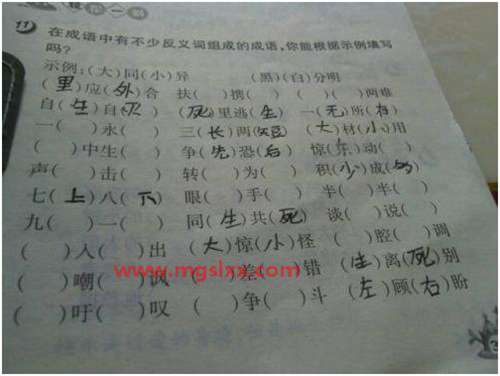 11 在成语中有不少反义词组成的成语,你能根据示例填写
吗?
示例:(大)同(小)异 (黑)(白)分明
(里)应(外)合 扶( )携( ) ( )( )两难
自(生)自(灭) (死)里逃(生) 一(无)所(有)
一( )永( ) 三(长)两(短) (大)材(小)用
( )中生( ) 争(先)恐(后) 惊(东)动( )
声( )击( ) 转( )为( ) 积(小)成( )
七(上)八(下) 眼( )手( ) 半( )半( )
九( )一( ) 同(生)共(死) 谈( )说( )
( )入( )出 (大)惊(小)怪 ( )腔( )调
( )嘲( )讽 ( )差( )错 (生)离(死)别
( )吁( )叹 ( )争( )斗 (左)顾(右)盼
www.mgslxx.com